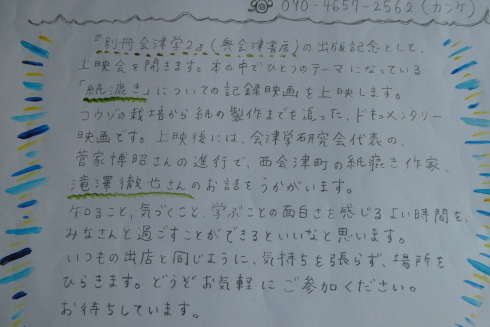 090-4657-2562 (カンケ)
『別冊会津学2』(奥会津書房)の出版記念として、
上映会を開きます。本の中でひとつのテーマになっている
「紙漉き」についての記録映画を上映します。
コウゾの栽培から紙の製作までを追った、ドキュメンタリー
映画です。上映後には、会津学研究会代表の、
菅家博昭さんの進行で、西会津町の紙漉き作家、
滝澤徹也さんのお話をうかがいます。
知ること、気づくこと、学ぶことの面白さを感じるよい時間を、
みなさんと過ごすことができるといいなと思います。
いつもの出店と同じように、気持ちを張らず、場所を
ひらきます。どうぞお気軽にご参加ください。
お待ちしています。